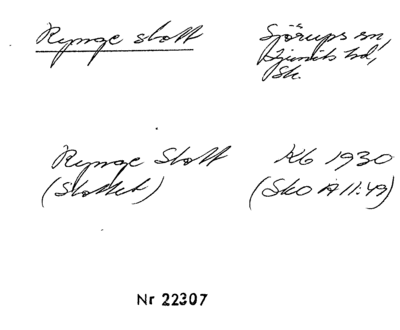 Rynge slott Sjörups sn,
Ljunits hd,
Sk.
Rynge Slott Kb 1930
(Slottet) (Sko A 11:49)
Nr 22307